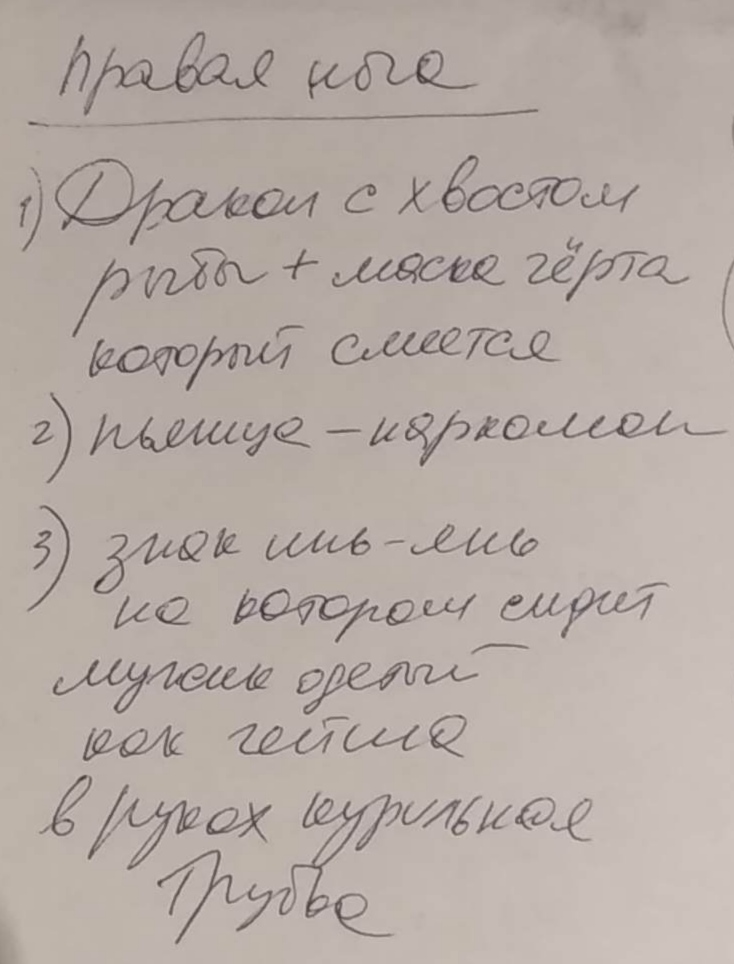 Правая нога
1) Дракон с хвостом
рыбы + маска чёрта
который смеется
2) пьяница – наркоман
3) знак инь-янь
на котором сидит
мужик одетый
как гейша
в руках курильная
трубка